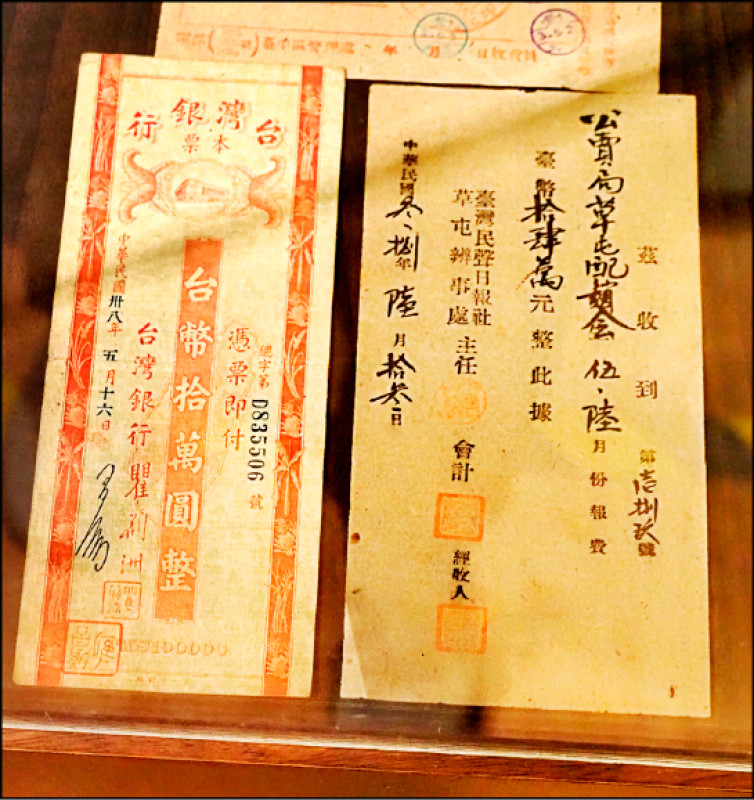 台灣銀行
本票
憑票即付
總字第D835506號
台幣拾萬圓整
台灣銀行瞿荊洲
中華民國卅八年五月十六日
茲收到
第壹捌玖號
公賣局草屯配銷会伍、陸月份報費
臺幣拾肆萬元整此據
臺灣民聲日報社
草屯辦事處主任 會計 經收人
中華民國叁捌年陸月拾叁日